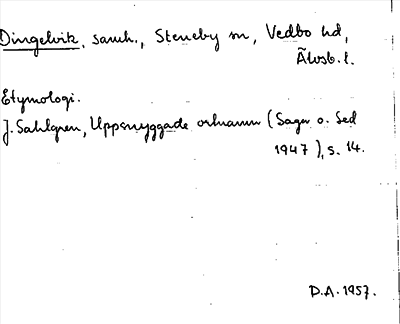 Dingelvik, samh., Steneby sn, Vedbo hd,
Älvsb. l.
Etymologi.
J. Sahlgren, Uppsnyggade ortnamn (Saga o. Sed
1947), s. 14.
D.A. 1957.